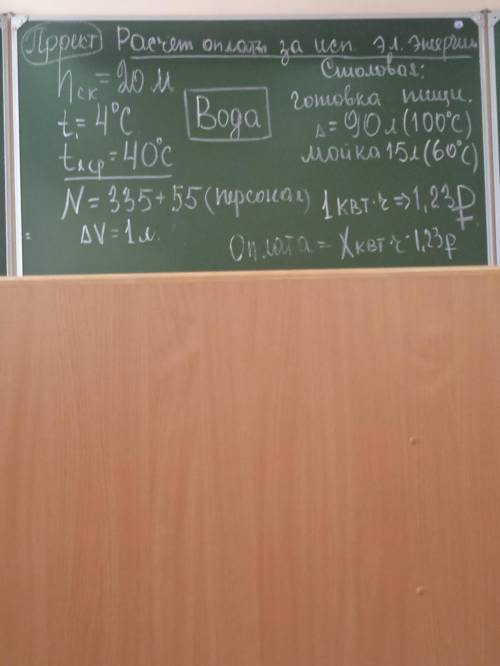 Проект Расчет оплаты за исп. эл. энергии
hск = 20 м
t₁ = 4°C
t₂ср = 40°C
N = 335 + 55 (персонал)
ΔV = 1 л.
Вода
Столовая:
готовка пищи.
= 90 л (100°C)
мойка 15 л (60°C)
1 квт·ч => 1,23 ₽
Оплата = X квт·ч · 1,23 ₽